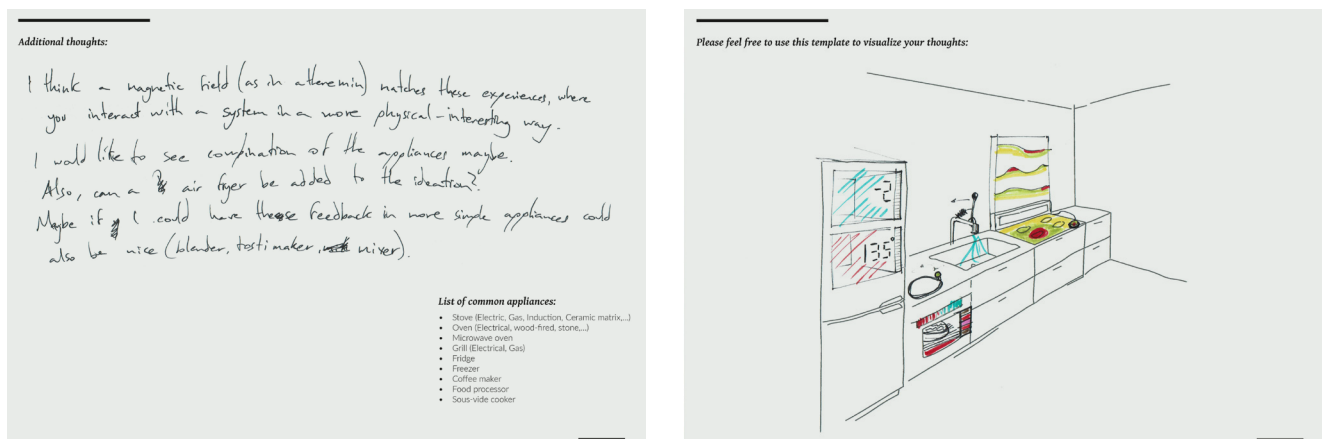 Additional thoughts:
I think a magnetic field (as in a theremin) matches these experiences, where
you interact with a system in a more physical-interesting way.
I would like to see compination of the appliances maybe.
Also, can a air fryer be added to the ideation?
Maybe if I could have these feedback in more simple appliances could
also be nice (blender, tosti maker, mixer).
List of common appliances:
• Stove (Electric, Gas, Induction, Ceramic matrix,...)
• Oven (Electrical, wood-fired, stone,...)
• Microwave oven
• Grill (Electrical, Gas)
• Fridge
• Freezer
• Coffee maker
• Food processor
• Sous-vide cooker
Please feel free to use this template to visualize your thoughts:
-2
135°